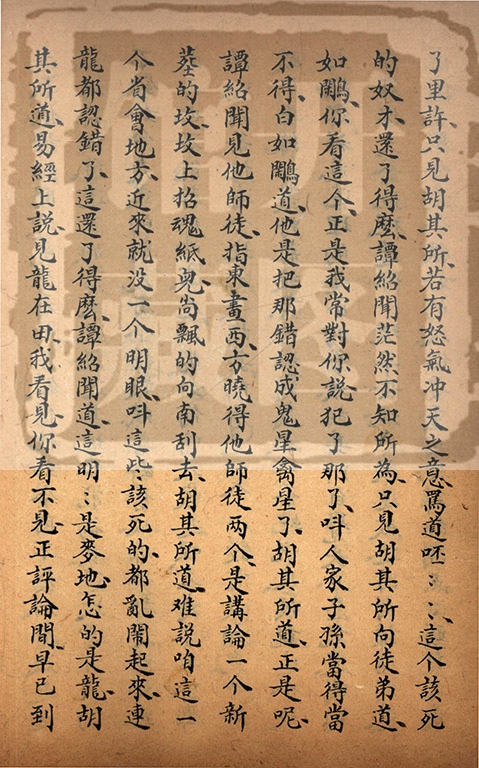 了里許只見胡其所若有怒氣冲天之意罵道呸：：這个該死
的奴才還了得麽譚紹聞茫然不知所為只見胡其所向徒弟道
如鷴你看這个正是我常對你說犯了那了呌人家子孫當得當
不得白如鷴道他是把那錯認成鬼星禽星了胡其所道正是呢
譚紹聞見他師徒指東畫西方曉得他師徒两个是講論一个新
塟的坟坟上招魂紙兒尚飄的向南刮去胡其所道难說咱這一
个省會地方近來就没一个明眼呌這些該死的都亂閙起來連
龍都認錯了這還了得麽譚紹聞道這明：是麥地怎的是龍胡
其所道易經上説見龍在田我看見你看不見正評論間早已到